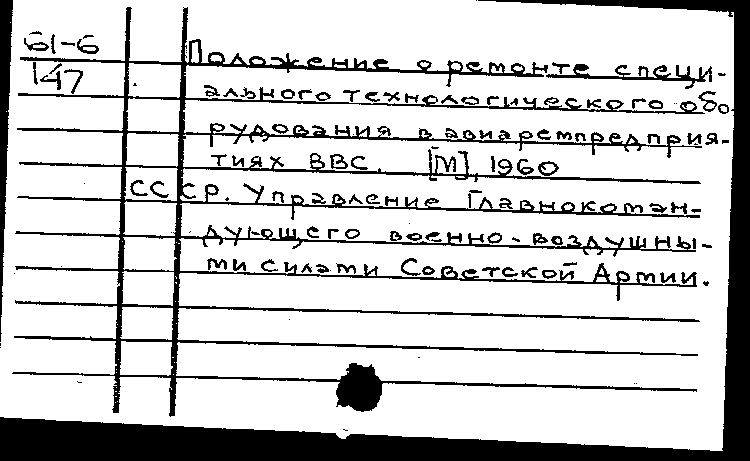 61-6
147
Положение о ремонте специ-
ального технологического обо-
рудования в авиаремпредприя-
тиях ВВС. [М], 1960
СССР. Управление Главнокоман-
дующего военно-воздушны-
ми силами Советской Армии.